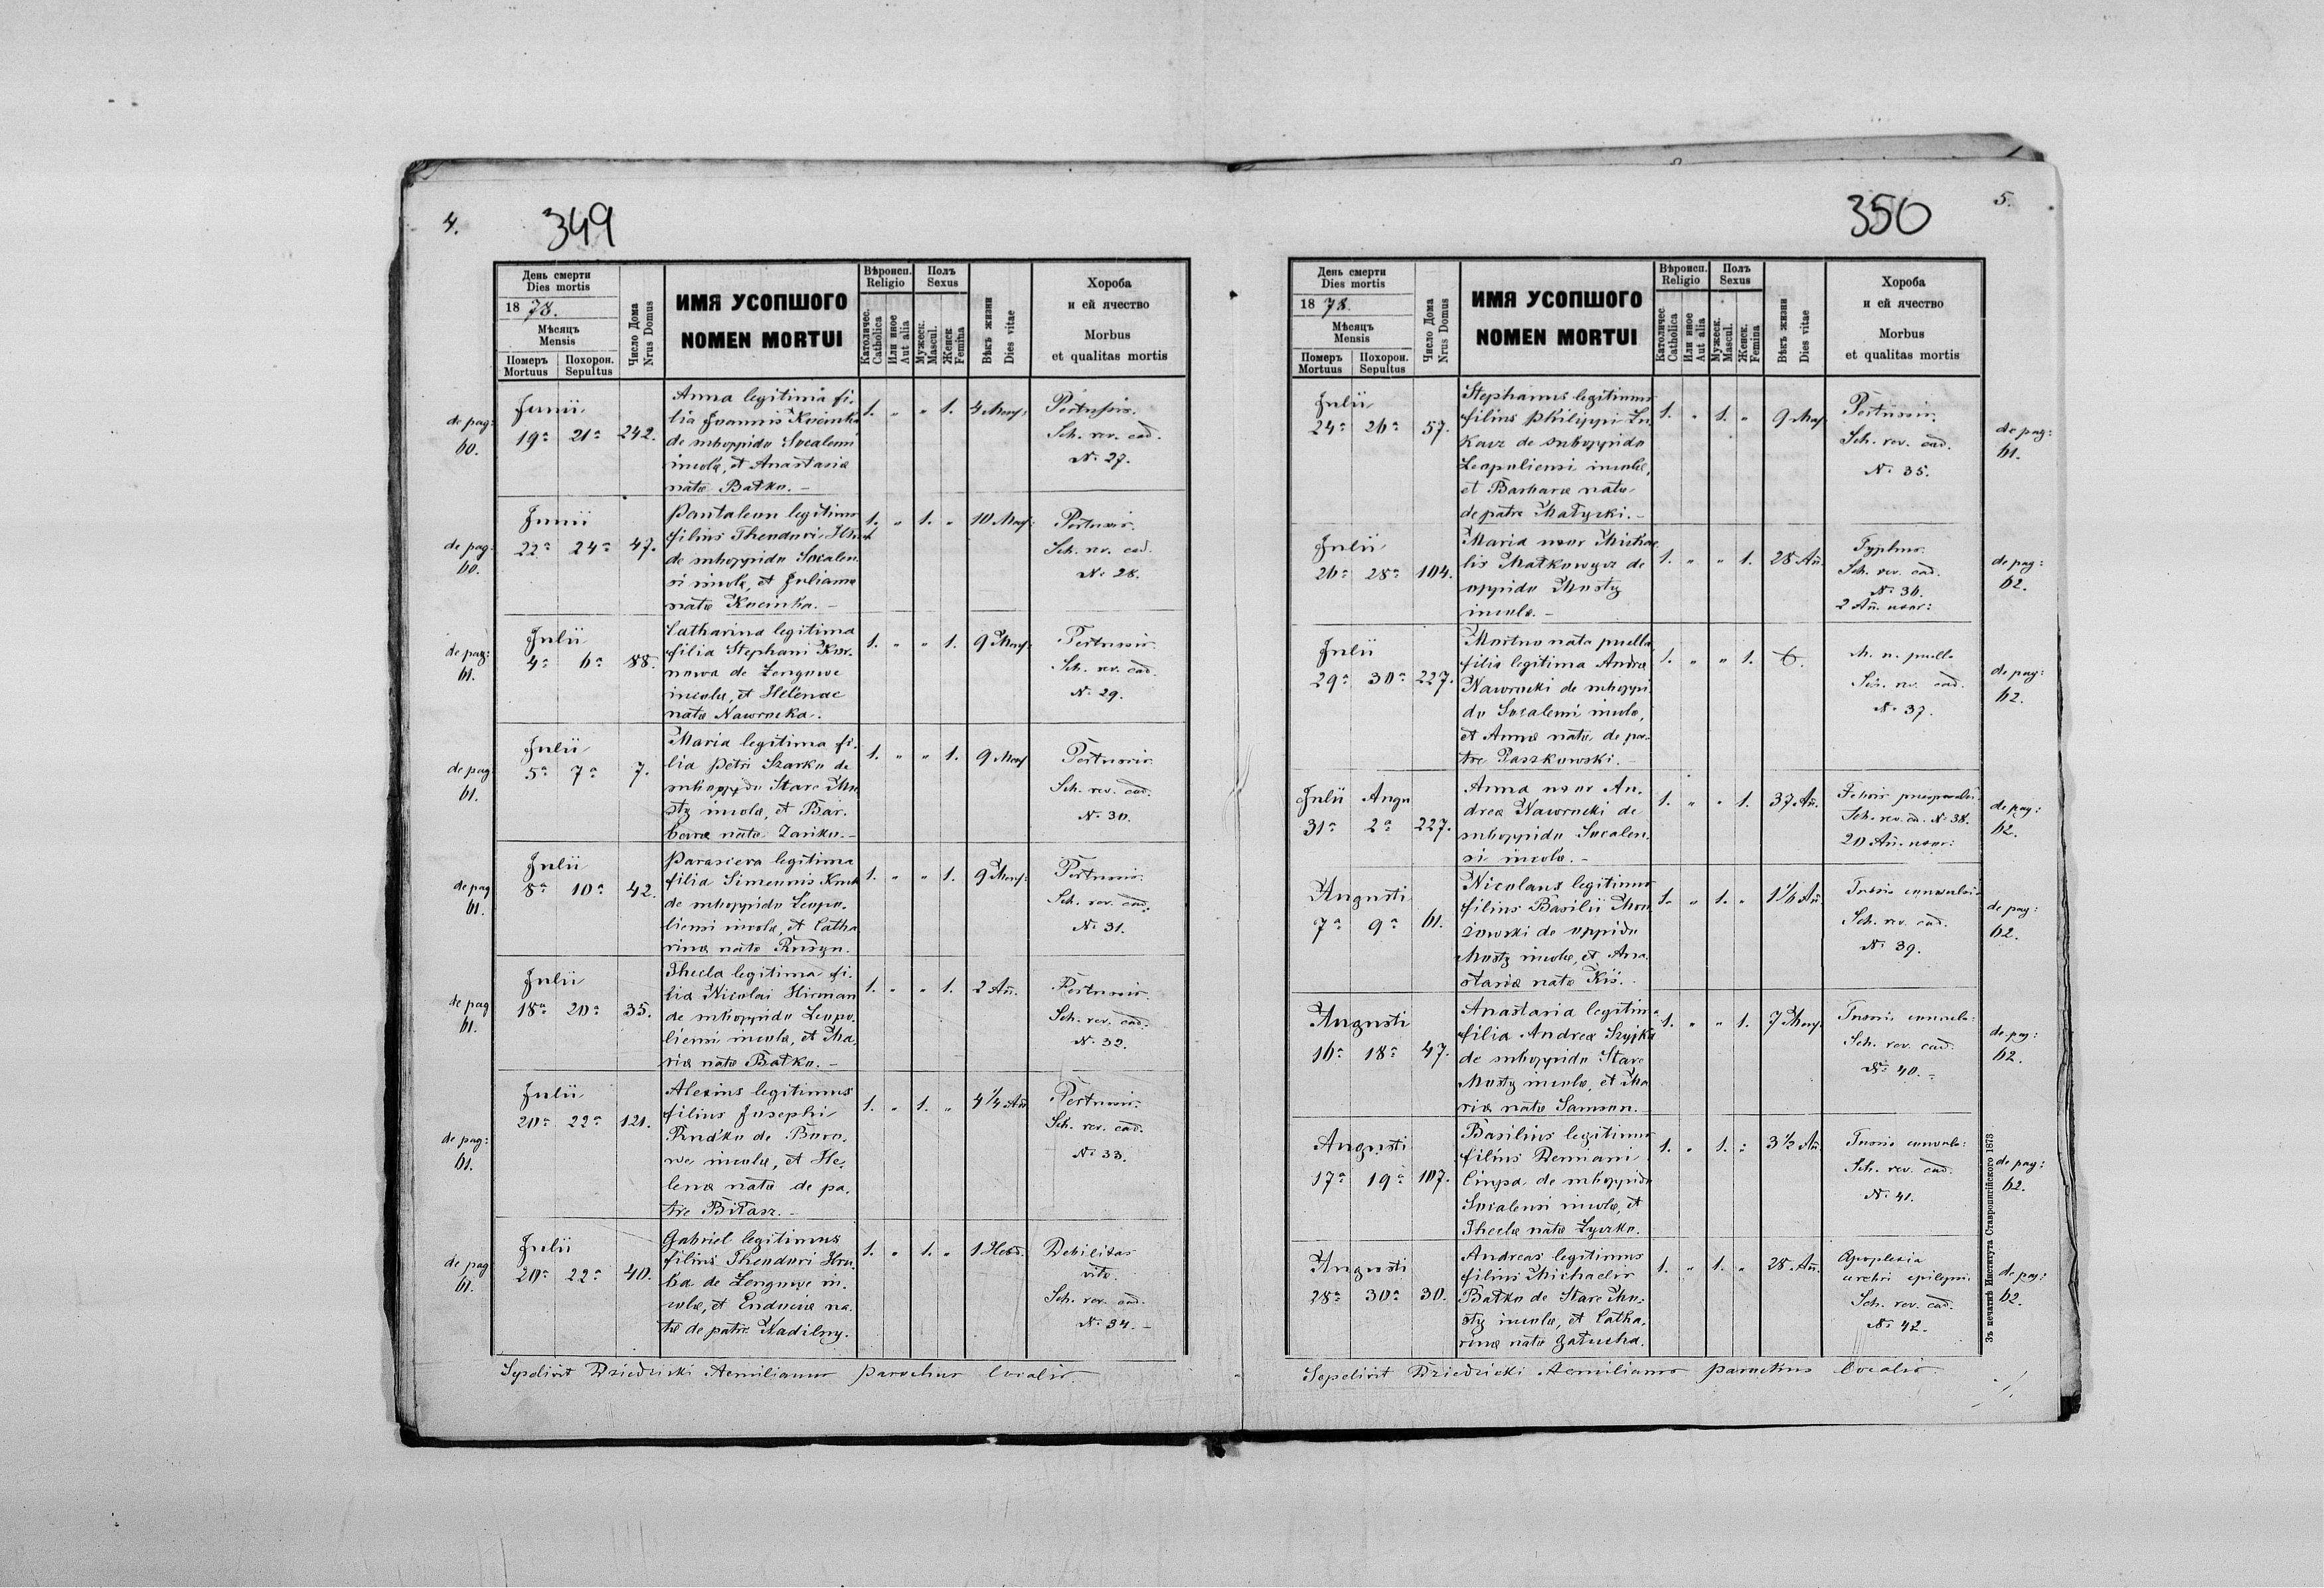 4.
349
День смерти
Dies mortis
1878.
Мѣсяцъ
Mensis
Померъ
Mortuus
Похорон.
Sepultus
Число Дома
Nrus Domus
ИМЯ УСОПШОГО
NOMEN MORTUI
Вѣроисп.
Religio
Католичес.
Catholica
Или иное
Aut alia
Полъ
Sexus
Мужеск.
Mascul.
Женск.
Femina
Вѣкъ жизни
Dies vitae
Хороба
и ей ячество
Morbus
et qualitas mortis
de pag:
60.
Junii
19a 21a 242.
Anna legitima fi-
lia Joannis Kocinka
de suboppido Socalensi
incolæ, et Anastasiæ
natæ Batko. –
1. " " 1. 4 Mens:
Pertussis.
Sch. rev. cad.
No 27.
de pag:
60.
Junii
22a 24a 47.
Pantaleon legitimus
filius Theodori
de suboppido Socalen-
si incolæ, et Julianna
natæ Kocinka. –
1. " 1. " 10 Mens:
Pertussis.
Sch. rev. cad.
No 28.
de pag:
61.
Julii
4a 6a 88.
Catharina legitima
filia Stephani Kor-
nowa de Zengowe
incolæ, et Helenae
natæ Nawrocka.
1. " " 1. 9 Mens:
Pertussis.
Sch. rev. cad.
No 29.
de pag:
61.
Julii
5a 7a 7.
Maria legitima fi-
lia Petri Szarko de
suboppido Stare Mo-
sty incolæ, et Bar-
baræ natæ Zariko. –
1. " " 1. 9 Mens
Pertussis.
Sch. rev. cad.
No 30.
de pag
61.
Julii
8a 10a 42.
Parascieva legitima
filia Simeonis
de suboppido Leopo-
liensi incolæ, et Catha
rinæ natæ Rusyn.
1. " " 1. 9 Mens:
Pertussis.
Sch. rev. cad.
No 31.
de pag
61.
Julii
18a 20a 35.
Thecla legitima fi-
lia Nicolai Hirman
de suboppido Leopo-
liensi incolæ, et Ma-
riæ natæ Batko. –
1. " " 1. 2 An.
Pertussis.
Sch. rev. cad.
No 32.
de pag:
61.
Julii
20a 22a 121.
Alexius legitimus
filius Josephi
Rudko de Boro-
we incolæ, et He-
lenæ natæ de pa-
tre Bitasz. –
1. " 1. " 4 1/4 An
Pertussis.
Sch. rev. cad.
No 33.
de pag
61.
Julii
20a 22a 40.
Gabriel legitimus
filius Theodori Hru-
ba de Zengowe in-
colæ, et Eudociæ na-
tæ de patre Nadilny.
1. " 1. " 1 Hebd.
Debilitas
vitæ.
Sch. rev. cad.
No 34. –
Sepelivit Dziedzicki Aemilianus parochus localis.
5.
350
День смерти
Dies mortis
1878.
Мѣсяцъ
Mensis
Померъ
Mortuus
Похорон.
Sepultus
Число Дома
Nrus Domus
ИМЯ УСОПШОГО
NOMEN MORTUI
Вѣроисп.
Religio
Католичес
Catholica
Или иное
Aut alia
Полъ
Sexus
Мужеск.
Mascul.
Женск.
Femina
Вѣкъ жизни
Dies vitae
Хороба
и ей ячество
Morbus
et qualitas mortis
Julii
24a 26a 57.
Stephanus legitimus
filius Philippi Lu-
kacz de suboppido
Leopoliensi incolæ,
et Barbaræ natæ
de patre Matycki. –
1. " 1. " 9 Mens
Pertussis.
Sch. rev. cad.
No 35.
de pag:
61.
Julii
26a 28a 104.
Maria uxor Michae-
lis Matkowycz de
oppido Mosty
incolæ. –
1. " " 1. 28 An.
Typhus.
Sch. rev. cad.
No 36.
2 An. uxor:
de pag:
62.
Julii
29a 30a 227.
Mortuo nata puella
filia legitima Andreæ
Nawrocki de suboppi-
do Socalensi incolæ,
et Annæ natæ de pa-
tre Paszkowski. –
1. " " 1.
M. n. puella
Sch. rev. cad.
No 37.
de pag:
62.
Julii Augu
31a 2a 227.
Anna uxor An-
dreæ Nawrocki de
suboppido Socalen-
si incolæ. –
1. " " 1. 37 An.
Febris puerperalis.
Sch. rev. cad. No 38.
20 An. uxor:
de pag:
62.
Augusti
7a 9a 61.
Nicolaus legitimus
filius Basilii
de oppido
Mosty incolæ, et Ana-
stasiæ natæ Kiś.
1. " 1. " 1 1/6 An.
Tussis convulsi:
Sch. rev. cad.
No 39.
de pag:
62.
Augusti
16a 18a 47.
Anastasia legitima
filia Andreæ Szyjka
de suboppido Stare
Mosty incolæ, et Ma
riæ natæ Samson.
1. " " 1. 7 Mens.
Tussis convuls:
Sch. rev. cad.
No 40. –
de pag:
62.
Augusti
17a 19a 107.
Basilius legitimus
filius Demiani
Ciupa de suboppido
Socalensi incolæ, et
Theclæ natæ Łyczko.
1. " 1. " 3 1/2 An.
Tussis convuls:
Sch. rev. cad.
No 41.
de pag:
62.
Augusti
28a 30a 30.
Andreas legitimus
filius Michaelis
Batko de Stare Mo-
sty incolæ, et Catha-
rinæ natæ Gatucha.
1. " 1. " 28 An.
Apoplexia
Sch. rev. cad.
No 42.
de pag:
62.
Зъ печатнѣ Института Ставропигійского 1873
Sepelivit Dziedzicki Aemilianus parochus localis.